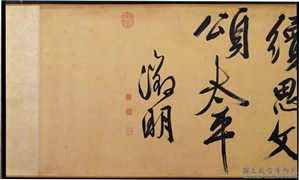 續思文
頌太平
徵明
國立故宮博物院